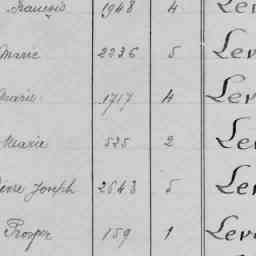 François 1948 4 Lev
Marie 2236 5 Lev
Marie 1717 4 Lev
Marie 525 2 Lev
Joseph 2643 5 Lev
Prosper 159 1 Lev